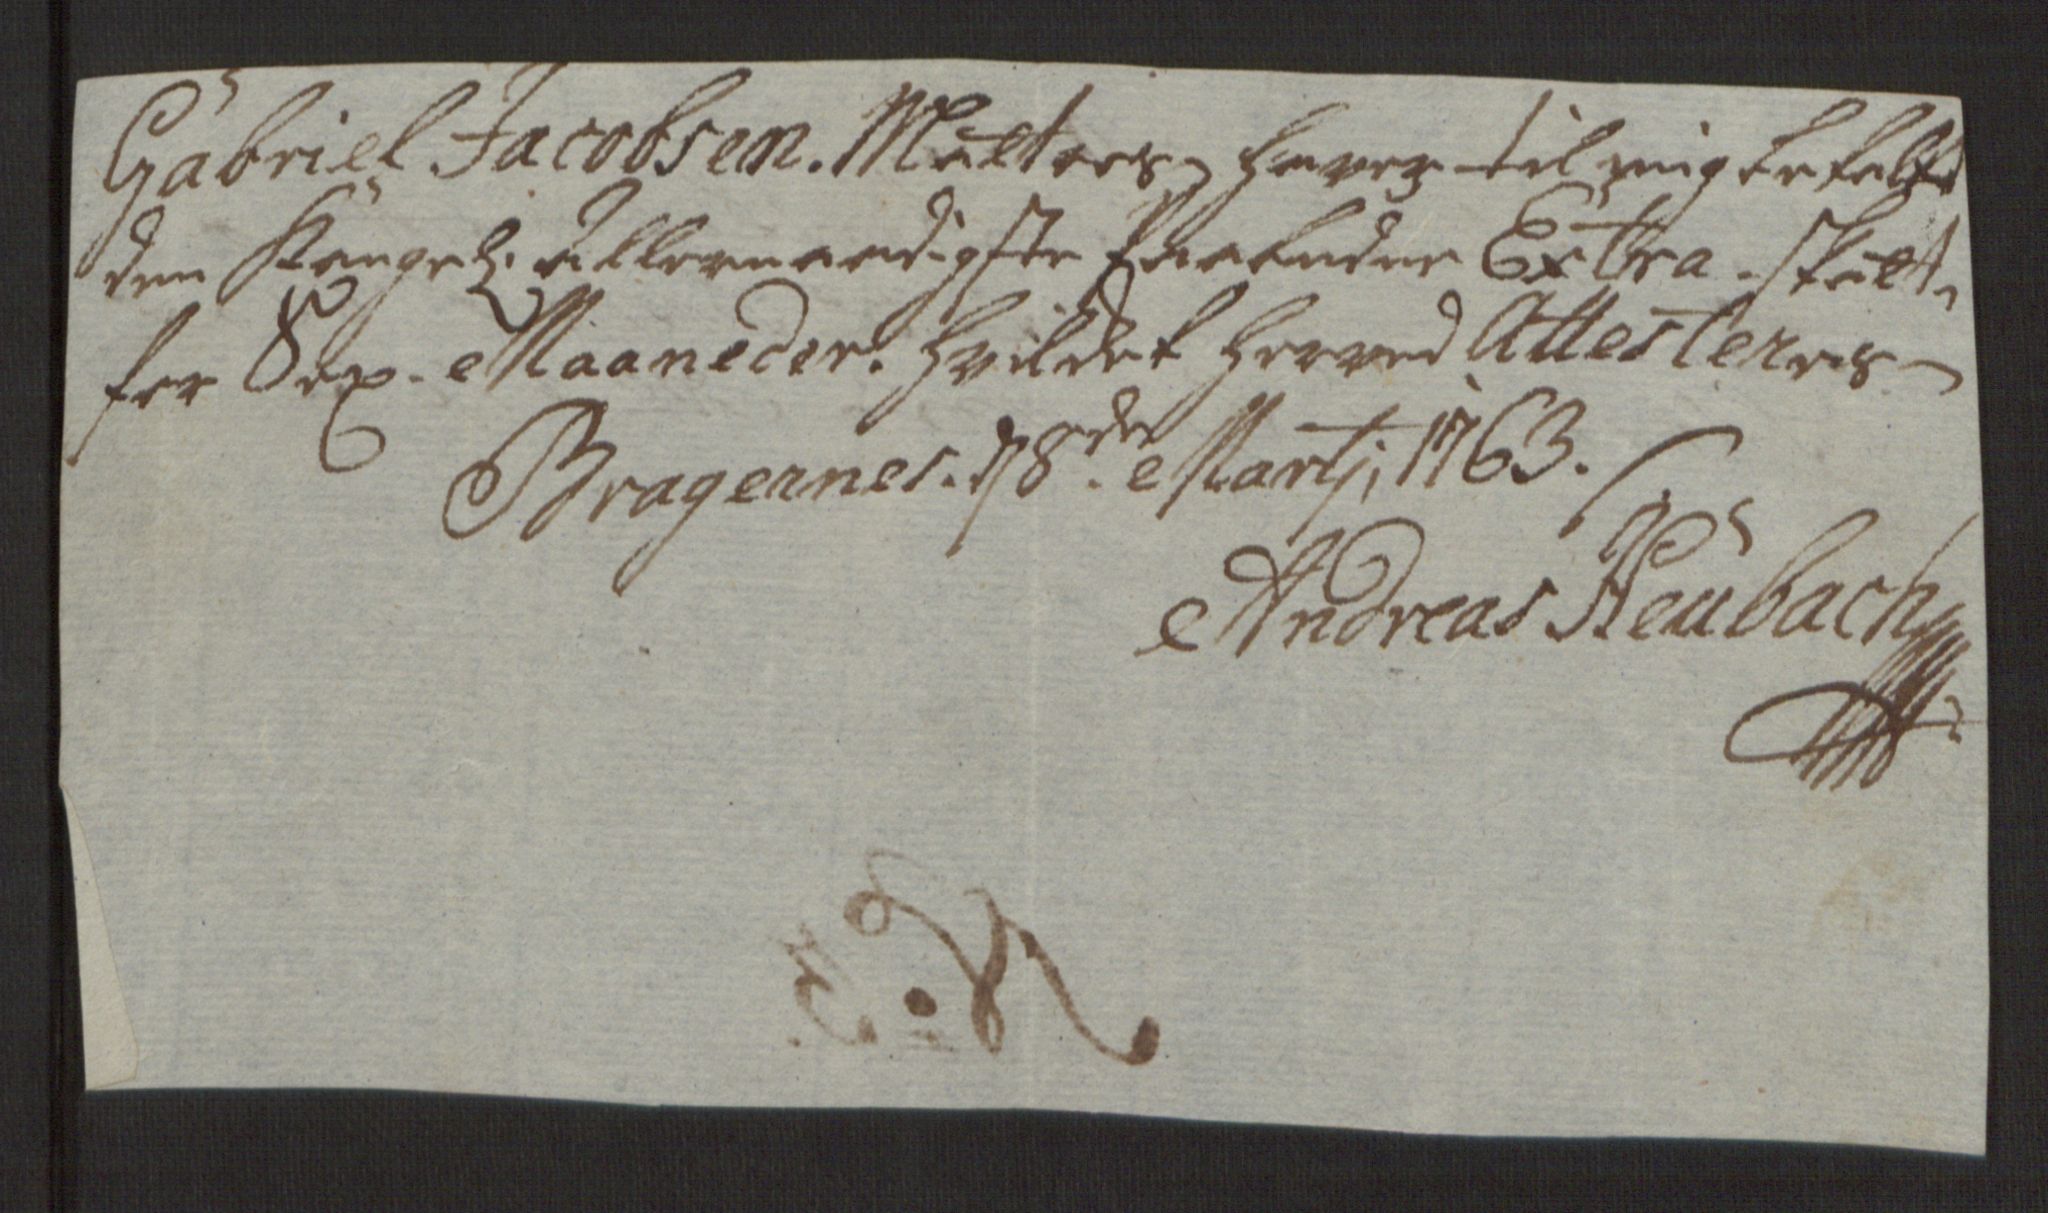 Gabriel Jacobsen. haver til mig betalt
den Kongel: Allernaadigste paabudne Extra. skatt
for Sex. Maaneder. hvilcket herved Attesteres
Bragernes. d 8de Martj, 1763.
Andreas Heübach
No. 3.